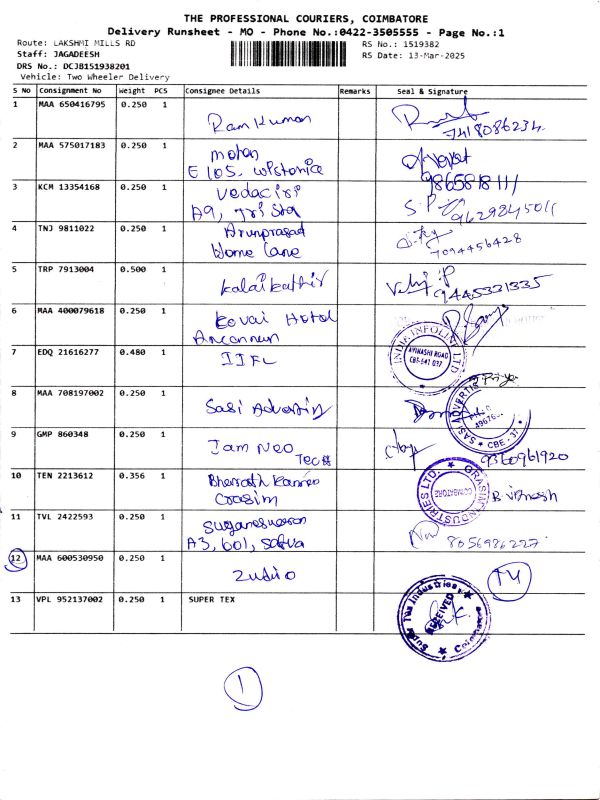 THE PROFESSIONAL COURIERS, COIMBATORE
Delivery Runsheet - MO - Phone No.:0422-3505555 - Page No.:1
Route: LAKSHMI MILLS RD RS No.: 1519382
Staff: JAGADEESH RS Date: 13-Mar-2025
DRS No.: DCJB151938201
Vehicle: Two Wheeler Delivery
S No Consignment No Weight PCS Consignee Details Remarks Seal & Signature
1 MAA 650416795 0.250 1 Ram Kumar
7418086234
2 MAA 575017183 0.250 1 mohan
E 105.
9865818111
3 KCM 13354168 0.250 1 vedagiri
A9, Tri Star
S.P 9629845011
4 TNJ 9811022 0.250 1 Arunprasad
Home lane
7094456428
5 TRP 7913004 0.500 1 kalaikathir
9445331335
6 MAA 400079618 0.250 1 kovai Hotel
7 EDQ 21616277 0.480 1 IIFL
INDIA INFOLINE LTD
AVINASHI ROAD
CBE-641 037
8 MAA 708197002 0.250 1 Sasi Advertis
SASI ADVERTIS
CBE - 37
9 GMP 860348 0.250 1 Jam Neo
Tech
9360961920
10 TEN 2213612 0.356 1 Bharath
Grasim
GRASIM INDUSTRIES LTD.
COIMBATORE
B. Vignesh
11 TVL 2422593 0.250 1
A3, 601,
8056986227
12 MAA 600530950 0.250 1 Zudio
13 VPL 952137002 0.250 1 SUPER TEX
Super Tex Industries
RECEIVED
Coimbatore
1